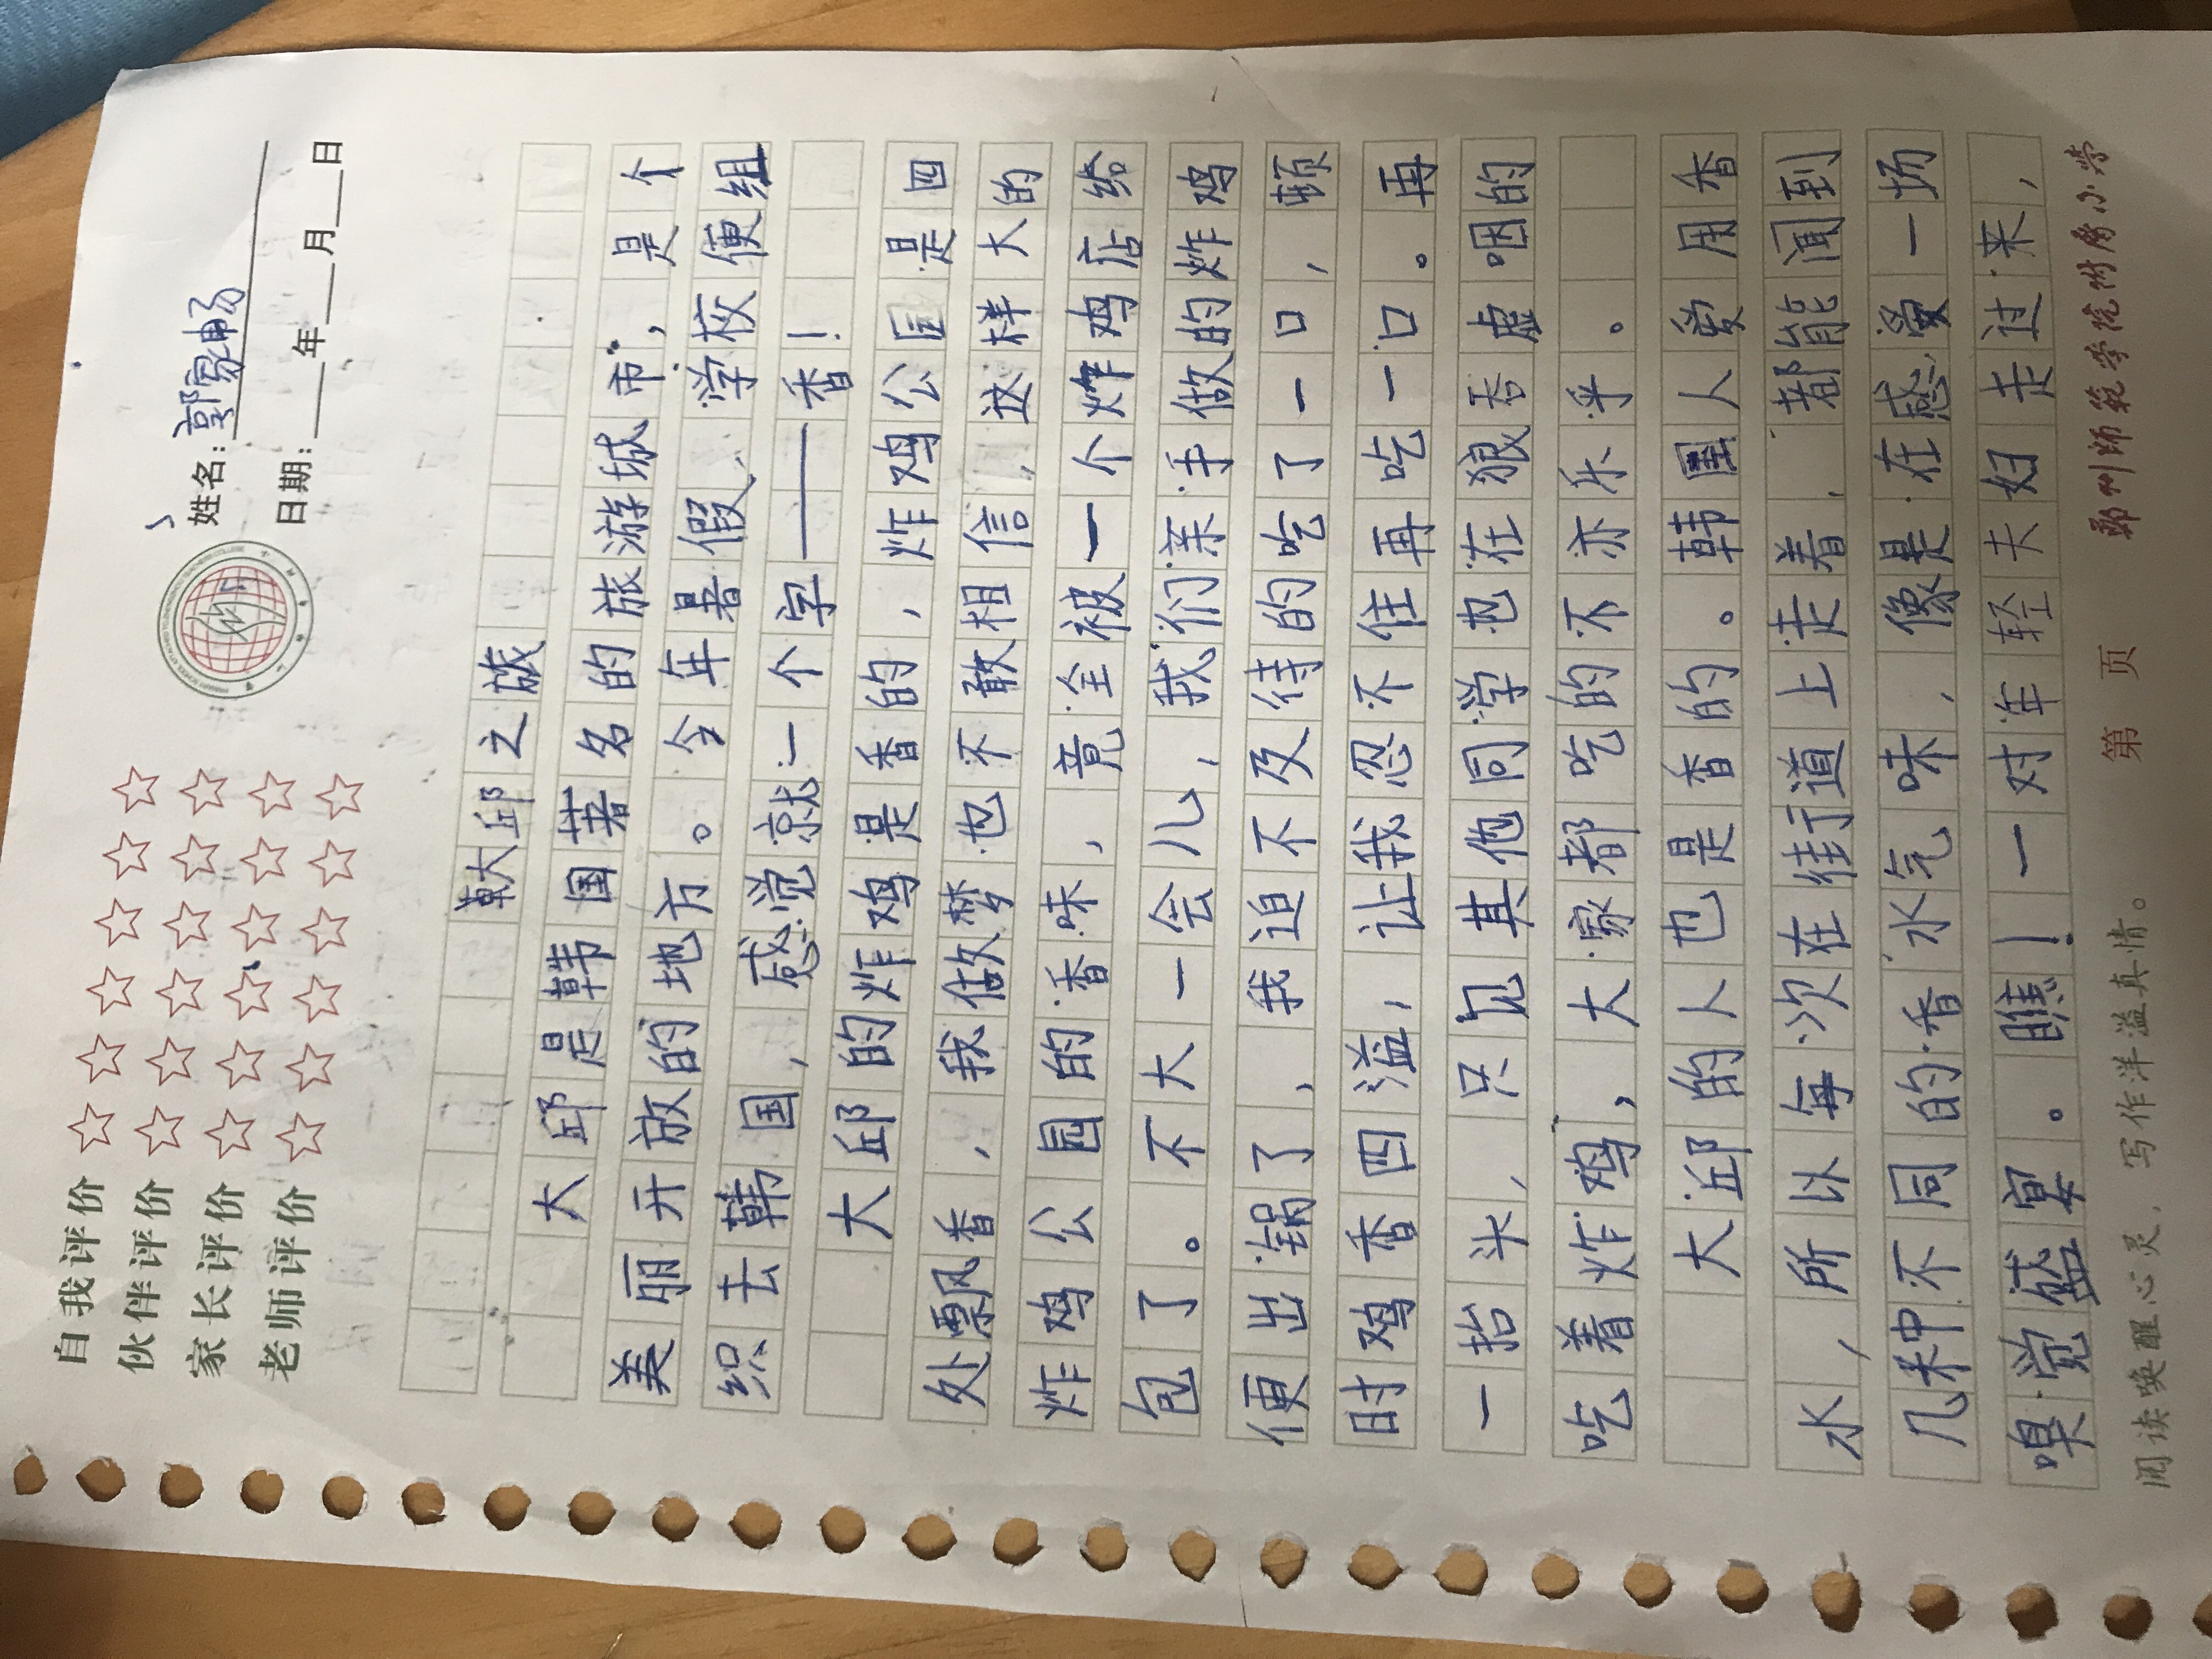 自我评价 ☆☆☆☆☆☆
伙伴评价 ☆☆☆☆☆☆
家长评价 ☆☆☆☆☆☆
老师评价 ☆☆☆☆☆☆
姓名：郭家畅
日期：___年___月___日
韩大邱之旅
大邱是韩国著名的旅游城市，是个
美丽开放的地方。今年暑假、学校便组
织去韩国，感觉就一个字——香！
大邱的炸鸡是香的，炸鸡公园是四
处飘风香，我做梦也不敢相信，这样大的
炸鸡公园的香味，竟全被一个炸鸡店给
包了。不大一会儿，我们亲手做的炸鸡
便出锅了，我迫不及待的吃了一口，顿
时鸡香四溢，让我忍不住再吃一口。再
一抬头，只见其他同学也在狼吞虚咽的
吃着炸鸡，大家都吃的不亦乐乎。
大邱的人也是香的。韩国人爱用香
水，所以每次在街道上走着，都能闻到
几种不同的香水气味，像是在感受一场
嗅觉盛宴。瞧！一对年轻夫妇走过来，
阅读唤醒心灵，写作洋溢真情。
第 页
郑州师范学院附属小学